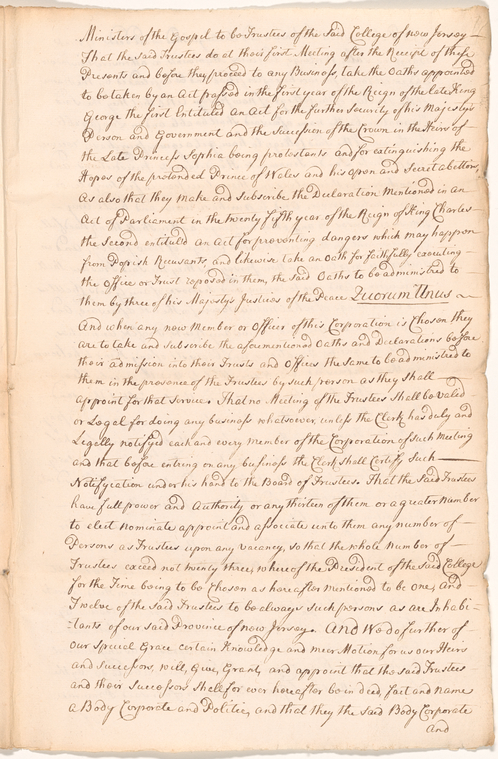 Ministers of the Gospel to be Trustees of the said College of new Jersey —
That the said Trustees do at their first Meeting after the Receipt of these
Presents and before they proceed to any Business, take the Oaths appointed
to be taken by an Act passed in the first year of the Reign of the late King
George the first Entituled An Act for the further security of his Majestys
Person and Government and the Succession of the Crown in the Heirs of —
the Late Princess Sophia being protestants and for extinguishing the
Hopes of the pretended Prince of Wales and his open and Secret abettors,
As also that they make and subscribe the Declaration Mentioned in an
Act of Parliament in the twenty fifth year of the Reign of King Charles
the Second entituld An Act for preventing dangers which may happen
from Popish Recusants, and likewise take an Oath for faithfully executing —
the Office or Trust reposed in them, the said Oaths to be administred to
them by three of his Majesty's Justices of the Peace Quorum Unus —
And when any new Member or Officer of this Corporation is Chosen they
are to take and subscribe the aforementioned Oaths and Declarations before
their admission into their Trusts and Offices the same to be administred to
them in the presence of the Trustees by such person as they shall —
appoint for that Service. That no Meeting of the Trustees shall be valed
or Legal for doing any business whatsoever, unless the Clerk has duly and
Legally notifyed each and every Member of the Corporation of such Meeting
and that before entering on any business the Clerk shall Certify such —
Notifycation under his hand to the Board of Trustees. That the said Trustees
have full power and Authority or any thirteen of them or a greater Number
to elect nominate appoint and associate unto them any number of —
Persons as Trustees upon any vacancy, so that the whole Number of —
Trustees exceed not twenty three, whereof the President of the said College
for the Time being to be Chosen as hereafter mentioned to be one, and
Twelve of the said Trustees to be always such persons as are Inhabi-
-tants of our said Province of new Jersey. And We do further of
our Special Grace certain Knowledge and meer Motion for us our Heirs
and successors, will, Give, Grant, and appoint that the said Trustees
and their Successors shall for ever hereafter be in deed, fact and Name
a Body Corporate and Politic, and that they the said Body Corporate
and